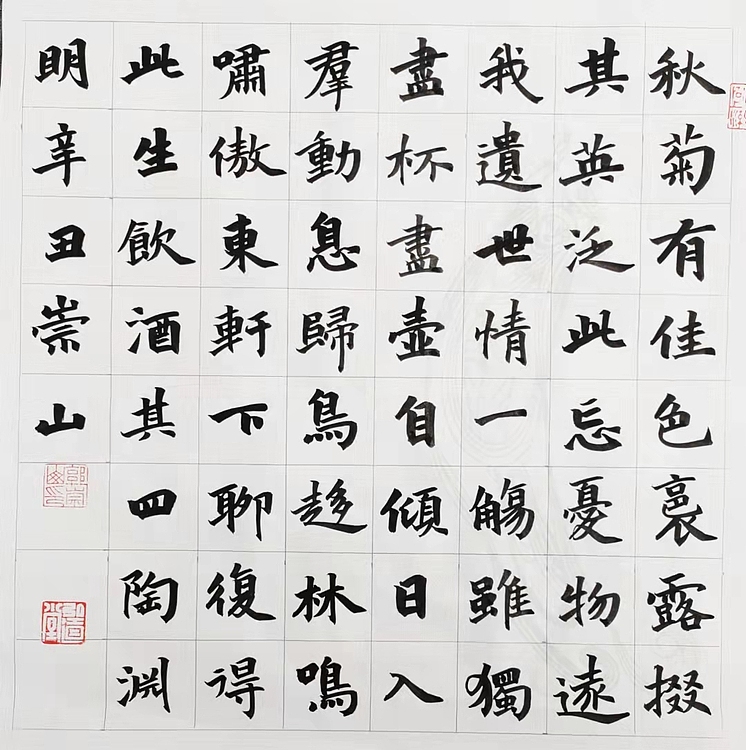 秋菊有佳色裛露掇
其英泛此忘憂物遠
我遺世情一觴雖獨
盡杯盡壺自傾日入
羣動息歸鳥趍林鳴
嘯傲東軒下聊復得
此生飲酒其四陶淵
明辛丑崇山